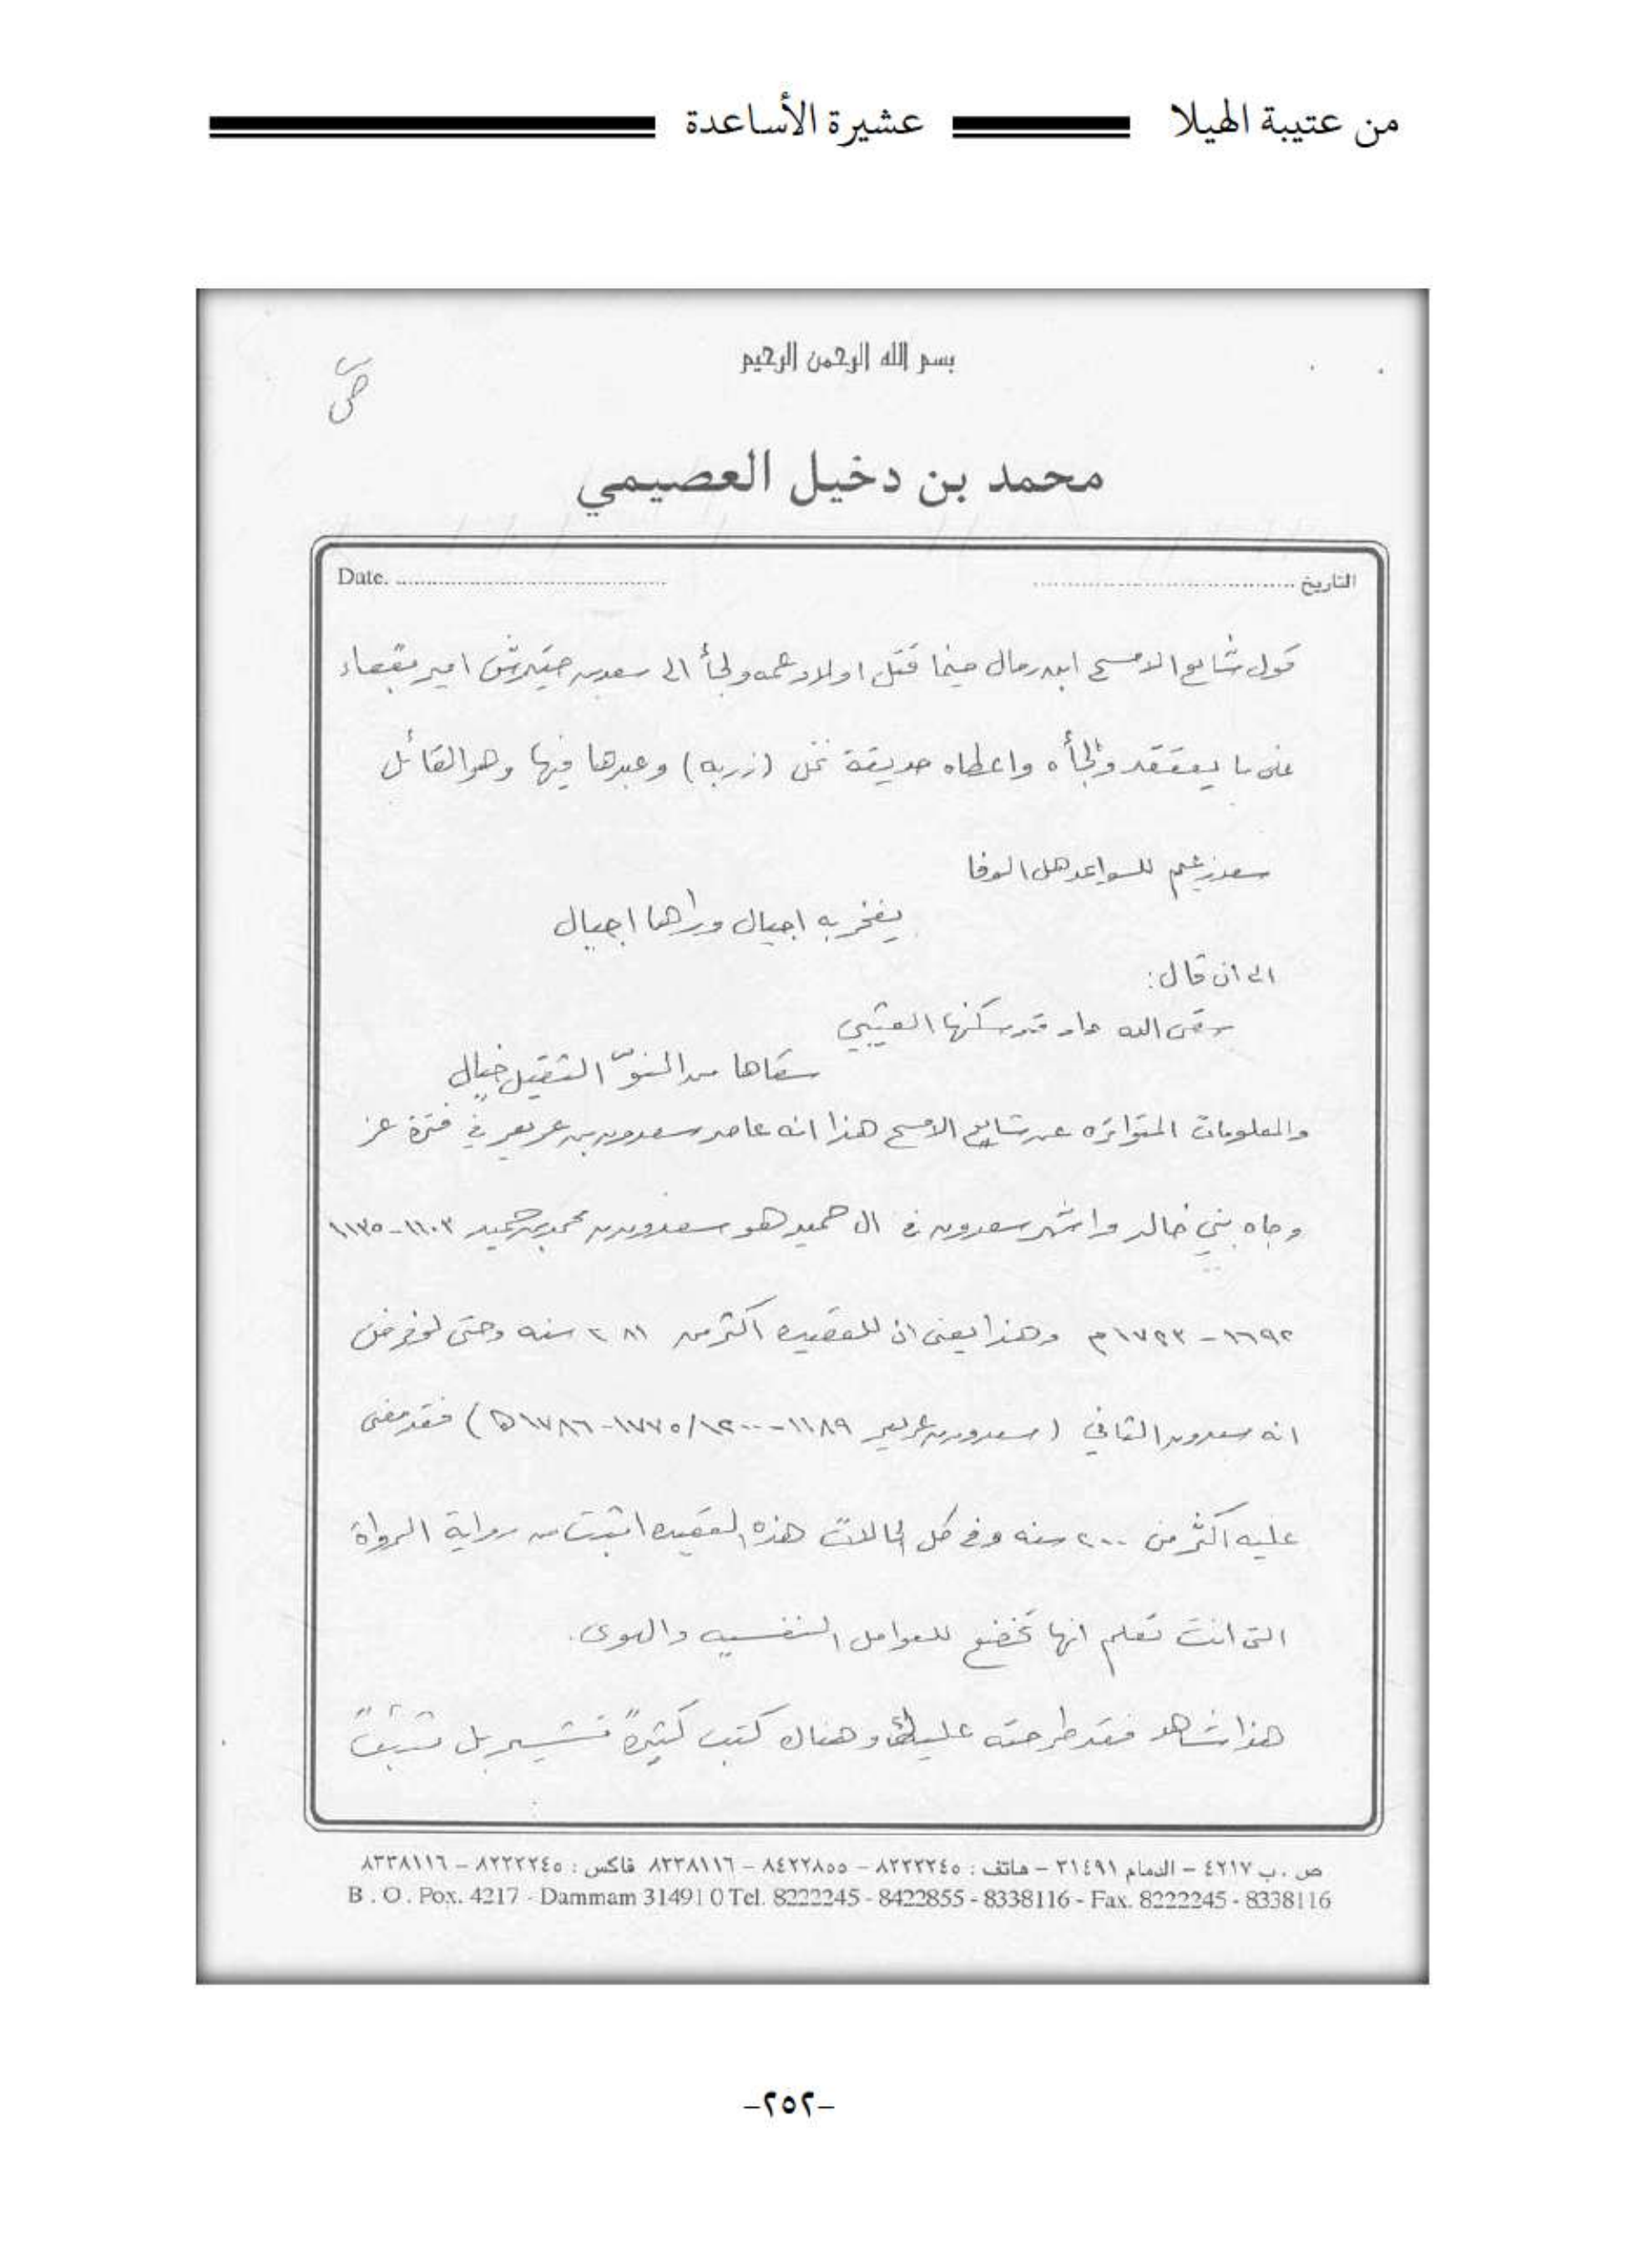 من عتيبة الهيلا عشيرة الأساعدة
بسم الله الرحمن الرحيم
محمد بن دخيل العصيمي
التاريخ Date.
قول شايع الامسح ابن رمال حينما قتل اولاد عمه ولجأ الى سعد بن امير بقعاء
على ما يعتقد ولجأه واعطاه حديقة نخل (زربه) وعبرها فيها وهو القائل
سعد زعيم للسواعد هل الوفا
يفخر به اجيال وراها اجيال
الى ان قال:
سقى الله دار قد سكنها العتيبي
سقاها من النوّ الثقيل خيال
والمعلومات المتواتره عن شايع الامسح هذا انه عاصر سعدون بن عريعر في فترة عز
وجاه بني خالد واشهر سعدون في ال حميد هو سعدون بن محمد بن حميد ١١٠٣-١١٣٥
١٦٩٢-١٧٢٣م وهذا يعني ان للقصيده اكثر من ٢٨١ سنه وحتى لو فرض
انه سعدون الثاني (سعدون بن عريعر ١١٨٩-١٢٠٠/١٧٧٥-١٧٨٦) فقد مضى
عليه اكثر من ٢٠٠ سنه وفي كل الحالات هذه القصيده اثبت من رواية الرواة
التى انت تعلم انها تخضع للعوامل النفسيه والهوى.
هذا شاهد فقد طرحته عليك وهناك كتب كثيرة تشير بل تثبت
ص . ب ٤٢١٧ – الدمام ٣١٤٩١ – هاتف : ٨٢٢٢٢٤٥ – ٨٤٢٢٨٥٥ – ٨٣٣٨١١٦ فاكس : ٨٢٢٢٢٤٥ – ٨٣٣٨١١٦
B . O . Pox. 4217 - Dammam 31491 0 Tel. 8222245 - 8422855 - 8338116 - Fax. 8222245 - 8338116
-٢٥٢-